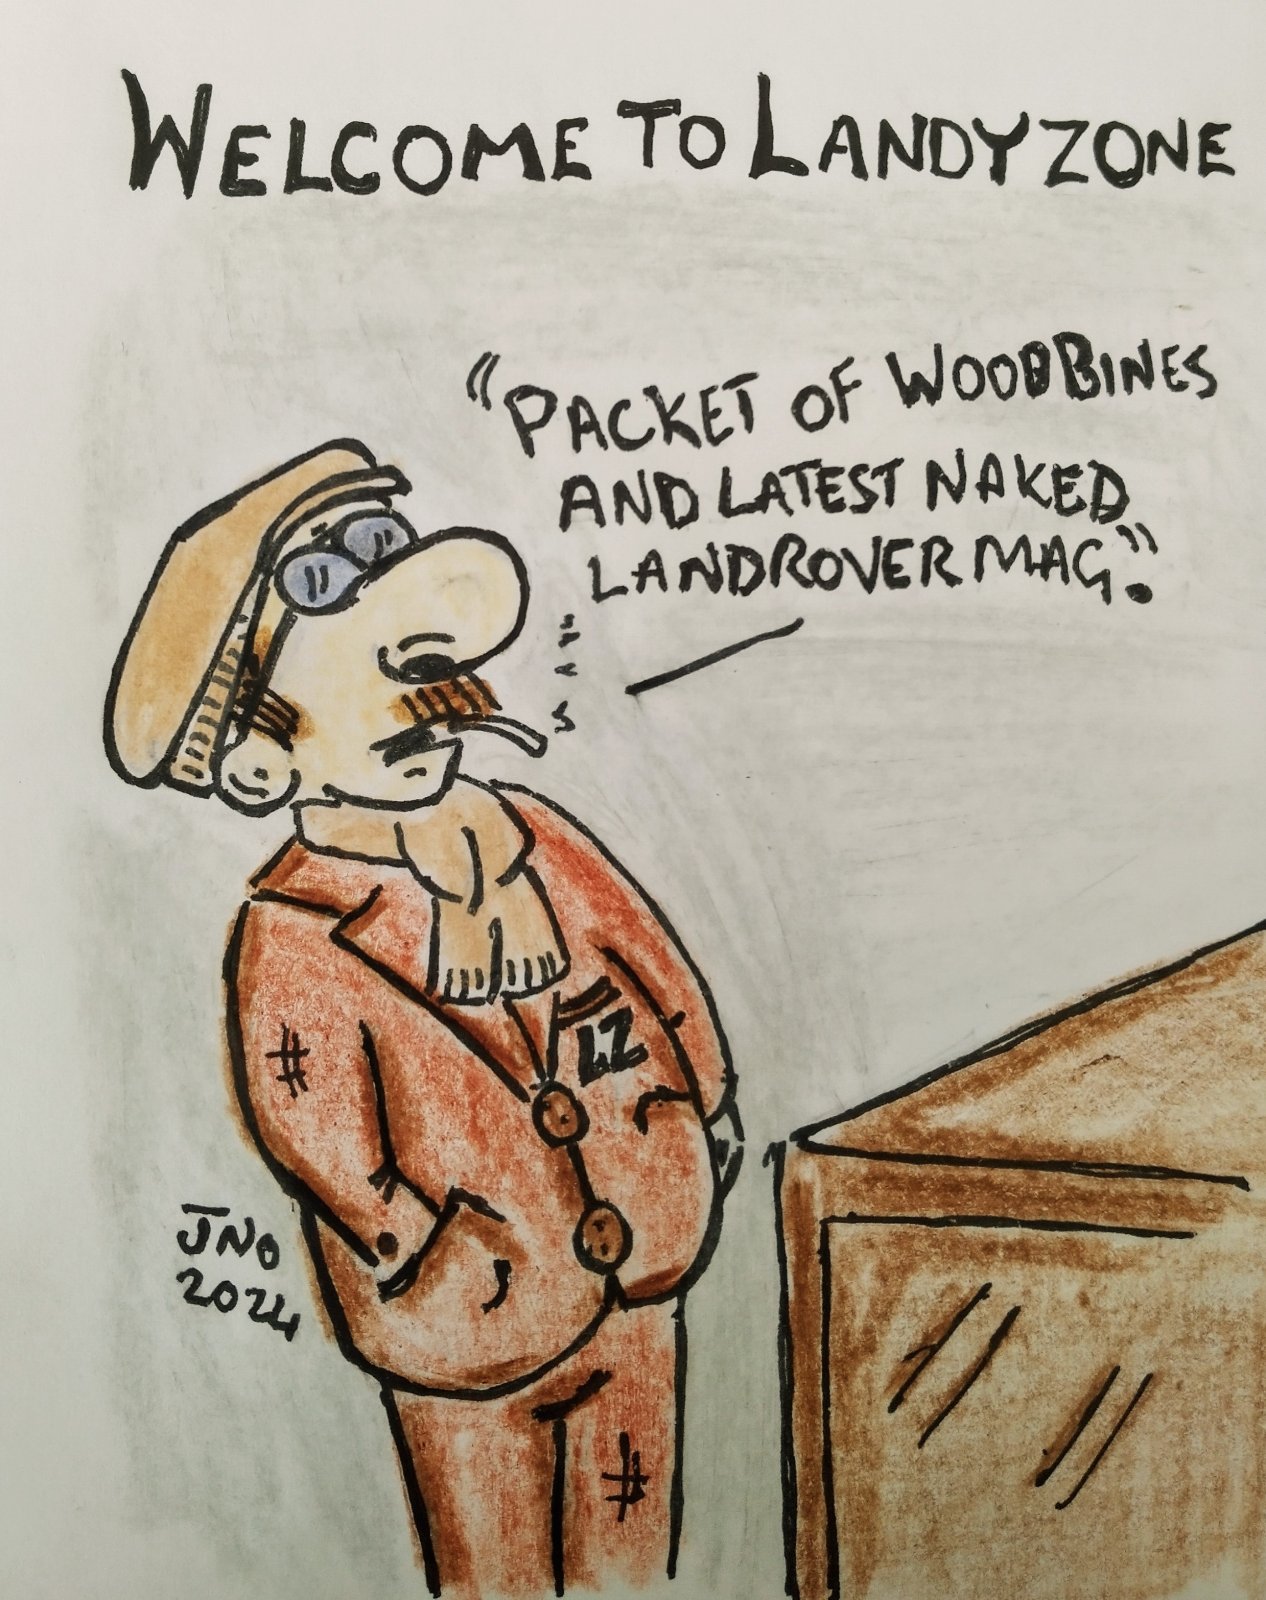 WELCOME TO LANDYZONE
"PACKET OF WOODBINES
AND LATEST NAKED
LANDROVER MAG."
LZ
JNO
2024